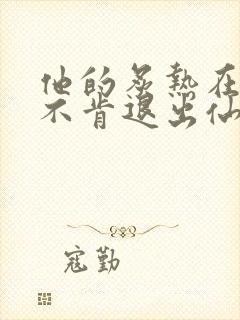 他的炙热在
不肯退出仙
寇勤